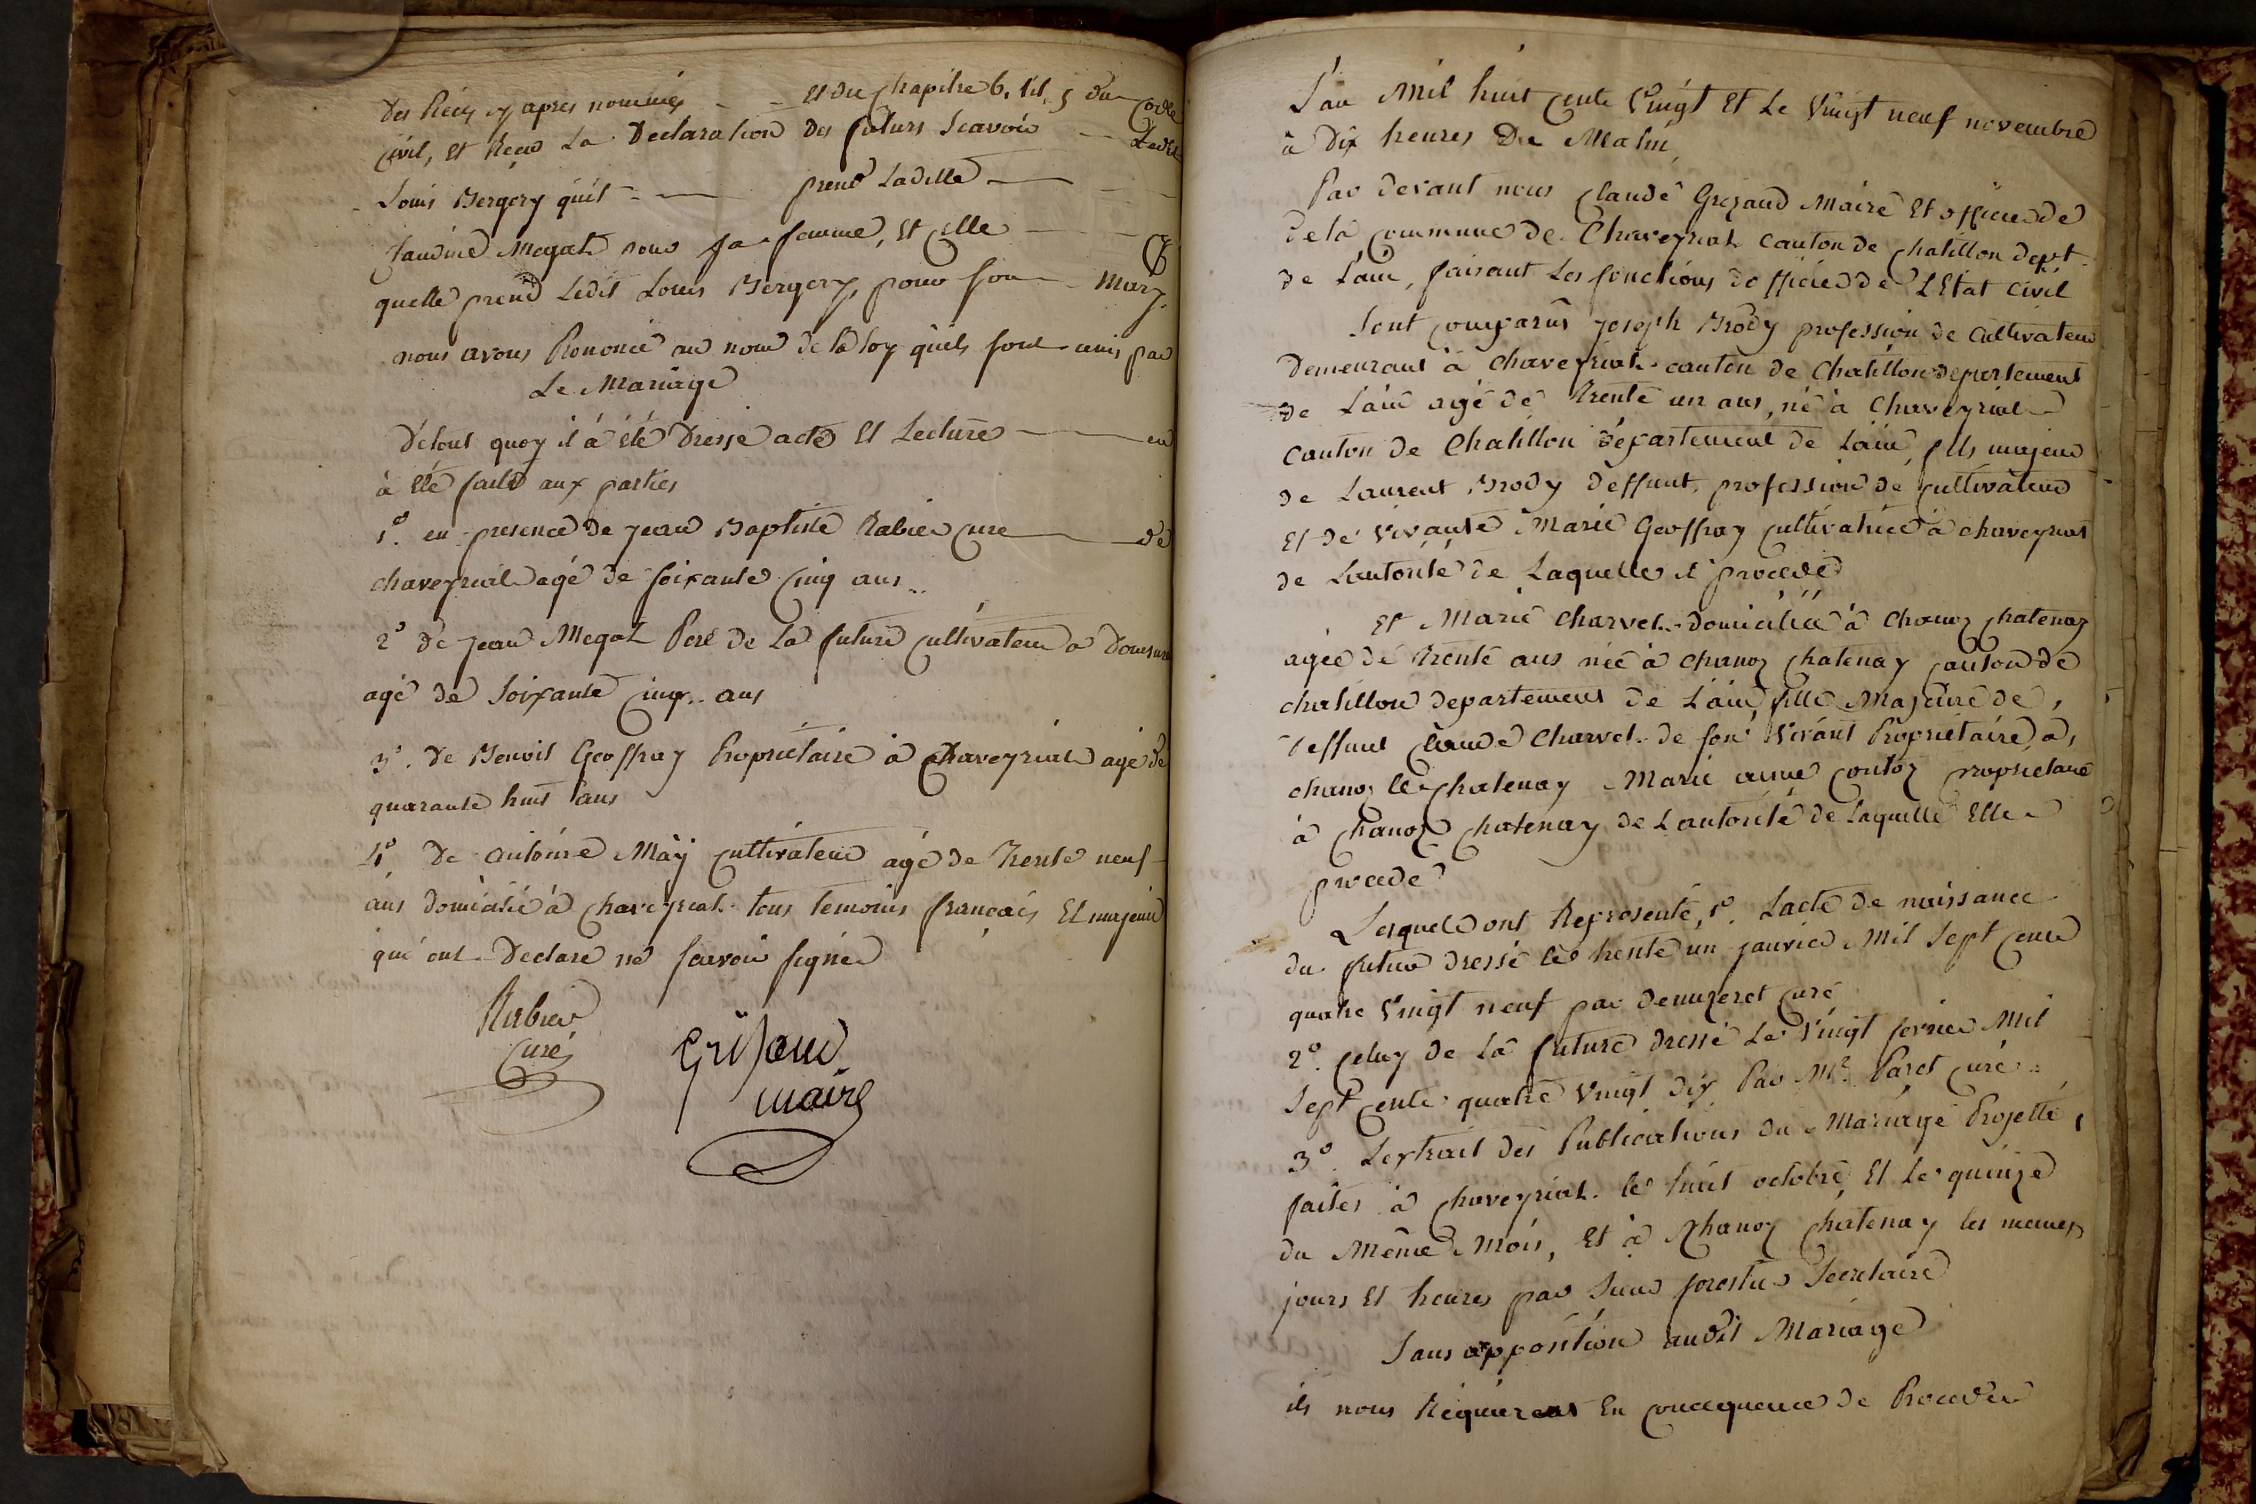 Des Pieces cy apres nommées - - et du Chapitre 6. tit. 5 du Code
Civil, Et Recu La Declaration Des futurs Scavoir - - Ledit
Louis Bergery quil - - prend Ladille - -
Claudine Megat pour sa femme, Et Celle - -
quelle prend Ledit Louis Bergery, pour son - Mary.
nous avons Prononcé au nom de la loy quils sont unis par
Le Mariage
Detout quoy il à été Dressé acte Et Lecture - en
à Eté faite aux parties
1º. en presence de jean Baptiste Rabier Curé - de
chaveyriat agé de soixante Cinq ans ..
2º de jean Megat Peré de La future cultivateur a
agé de soixante cinq .. ans
3º. de Benoit Geoffray Proprietaire à Chaveyriat agé de
quarante huit ans
4º. De antoine Mäÿ cultivateur agé de Trente neuf
ans domicilié à Chaveyriat. tous temoins français Et majeur
qui ont Declaré né savoir signer
Rabier
Curé
Grizaud
maire
L'an Mil huit Cents Vingt Et Le Vingt neuf novembre
à Dix heures Du Matin,
Par devant nous Claude Grizaud Maire Et officier de
de la Commune de Chaveyriat Canton de Chatillon dept.
de L'ain, faisant Les fonctions d officier de L'Etat Civil
Sont Comparus joseph Brody profession de Cultivateur
Demeurant à Chaveyriat. canton de Chatillon departement
de Lain agé de Trente un ans, né à Chaveyriat
Canton de Chatillon département de Lain, fils majeur
de Laurent Brody deffunt, profession de Cultivateur
Et de vivante Marie Geoffray Cultivatrice à chaveyriat
de Lautorité de Laquelle il procede
Et Marie Charvet. Domiciliée à Chanoz Chatenay
agée de Trente ans née à chanoz Chatenay Canton de
chatillon departement de Lain, fille Majeure de,
deffunt Claude Charvet. de son Vivant Proprietaire, a,
chanoz le Chatenay Marie anne Contoz proprietaire
à Chanoz Chatenay de Lautorité de laquelle Elle
procede
Lesquels ont Representé, 1º. Lacte de naissance
du futur dressé le trente un janvier Mil Sept Cents
quatre Vingt neuf par Curé
2º. Celuy de La future dressé Le Vingt fevrier Mil
Sept Cents quatre Vingt dix Par Mr. Paret Curé ..
3º. Lextrait des Publications du Mariage Projetté,
faites à Chaveyriat. le huit octobre Et le quinze
du Même Mois, Et à Chanoz Chatenay les memes
jours Et heures par Sieur forestier Secretaire
Sans opposition audit Mariage
ils nous Requierent En Concequence de Proceder